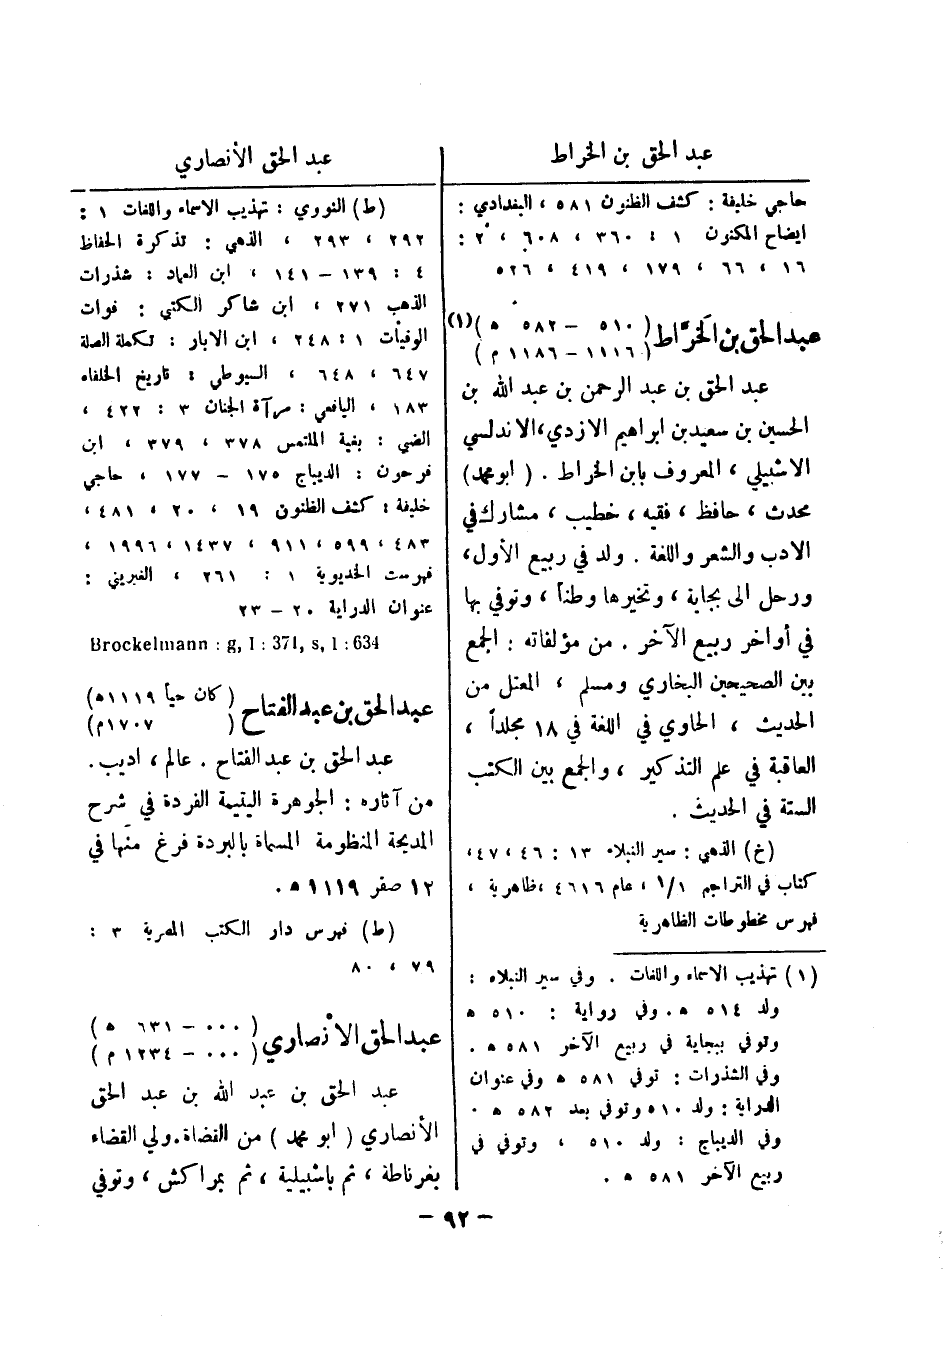 عبد الحق بن الخراط
حاجي خليفة : كشف الظنون ٥٨١ ، البغدادي :
ايضاح المكنون ١ : ٣٦٠ ، ٦٠٨ ، ٢ :
١٦ ، ٦٦ ، ١٧٩ ، ٤١٩ ، ٥٢٦
عبد الحق بن الخرّاط ( ٥١٠ – ٥٨٢ ه )(١)
( ١١١٦ – ١١٨٦ م )
عبد الحق بن عبد الرحمن بن عبد الله بن
الحسين بن سعيد بن ابراهيم الازدي، الاندلسي
الاشبيلي ، المعروف بابن الخراط . ( ابو محمد )
محدث ، حافظ ، فقيه ، خطيب ، مشارك في
الادب والشعر واللغة . ولد في ربيع الأول،
ورحل الى بجاية ، وتخيرها وطناً ، وتوفي بها
في أواخر ربيع الآخر . من مؤلفاته : الجمع
بين الصحيحين البخاري ومسلم ، المعتل من
الحديث ، الحاوي في اللغة في ١٨ مجلداً ،
العاقبة في علم التذكير ، والجمع بين الكتب
الستة في الحديث .
(خ) الذهبي : سير النبلاء ١٣ : ٤٦ ، ٤٧ ،
كتاب في التراجم ١/١ ، عام ٤٦١٦ ، ظاهرية ،
فهرس مخطوطات الظاهرية
(١) تهذيب الاسماء واللغات . وفي سير النبلاء :
ولد ٥١٤ ه . وفي رواية : ٥١٠ ه
وتوفي ببجاية في ربيع الآخر ٥٨١ ه .
وفي الشذرات : توفي ٥٨١ ه وفي عنوان
الدراية : ولد ٥١٠ وتوفي بعد ٥٨٢ ه .
وفي الديباج : ولد ٥١٠ ، وتوفي في
ربيع الآخر ٥٨١ ه .
عبد الحق الأنصاري
(ط) النووي : تهذيب الاسماء واللغات ١ :
٢٩٢ ، ٢٩٣ ، الذهبي : تذكرة الحفاظ
٤ : ١٣٩ – ١٤١ ، ابن العماد : شذرات
الذهب ٢٧١ ، ابن شاكر الكتبي : فوات
الوفيات ١ : ٢٤٨ ، ابن الابار : تكملة الصلة
٦٤٧ ، ٦٤٨ ، السيوطي : تاريخ الخلفاء
١٨٣ ، اليافعي : مرآة الجنان ٣ : ٤٢٢ ،
الضبي : بغية الملتمس ٣٧٨ ، ٣٧٩ ، ابن
فرحون : الديباج ١٧٥ – ١٧٧ ، حاجي
خليفة : كشف الظنون ١٩ ، ٢٠ ، ٤٨١ ،
٤٨٣ ، ٥٩٩ ، ٩١١ ، ١٤٣٧ ، ١٩٩٦ ،
فهرست الخديوية ١ : ٢٦١ ، الغبريني :
عنوان الدراية ٢٠ – ٢٣
Brockelmann : g, I : 371, s, I : 634
عبد الحق بن عبد الفتاح ( كان حياً ١١١٩ ه )
( ١٧٠٧ م )
عبد الحق بن عبد الفتاح . عالم ، اديب .
من آثاره : الجوهرة اليتيمة الفردة في شرح
المديحة المنظومة المسماة بالبردة فرغ منها في
١٢ صفر ١١١٩ ه .
(ط) فهرس دار الكتب المصرية ٣ :
٧٩ ، ٨٠
عبد الحق الأنصاري ( ٠٠٠ – ٦٣١ ه )
( ٠٠٠ – ١٢٣٤ م )
عبد الحق بن عبد الله بن عبد الحق
الأنصاري ( ابو محمد ) من القضاة . ولي القضاء
بغرناطة ، ثم باشبيلية ، ثم بمراكش ، وتوفي
– ٩٢ –